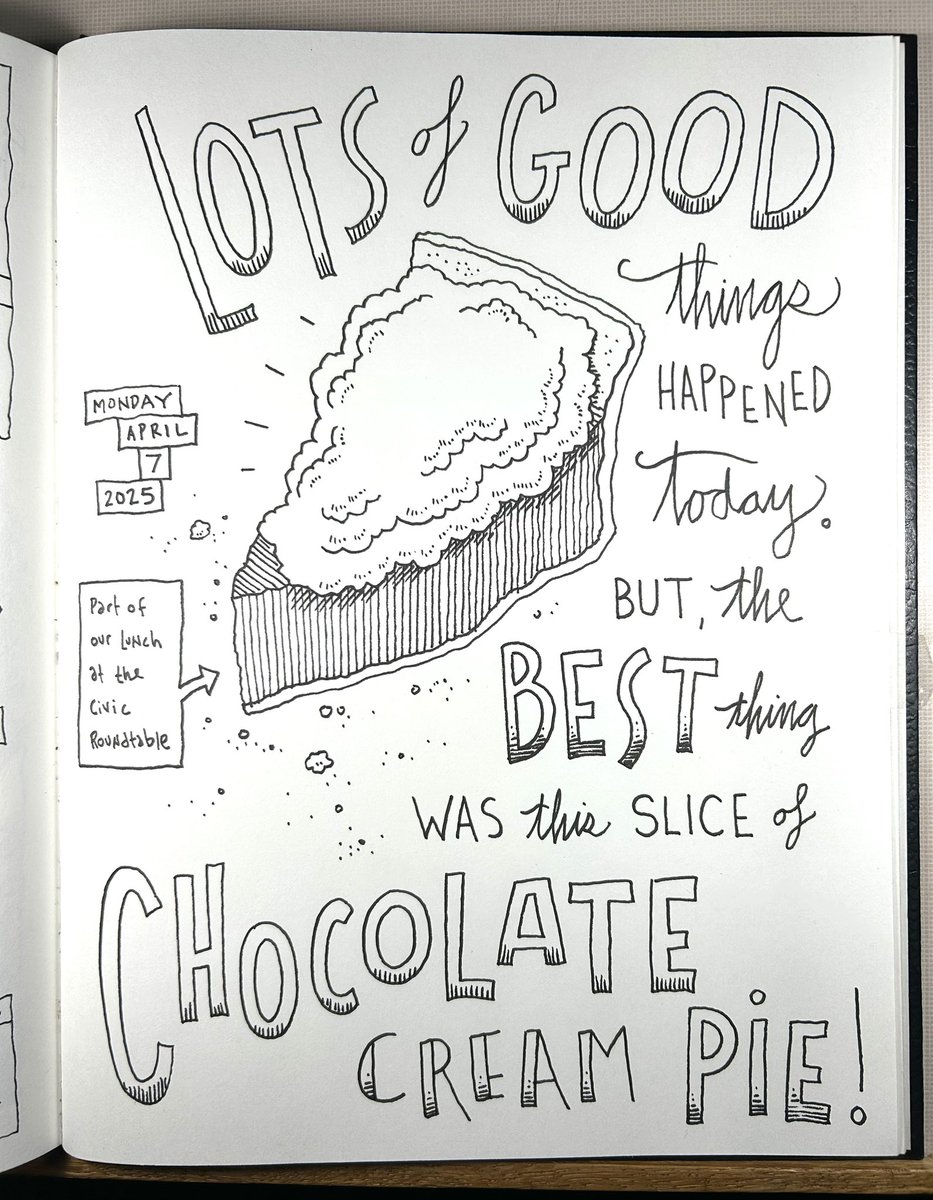 LOTS of GOOD
things
HAPPENED
today.
BUT, the
BEST thing
WAS this SLICE of
CHOCOLATE
CREAM PIE!
MONDAY
APRIL
7
2025
Part of
our Lunch
at the
Civic
Roundtable